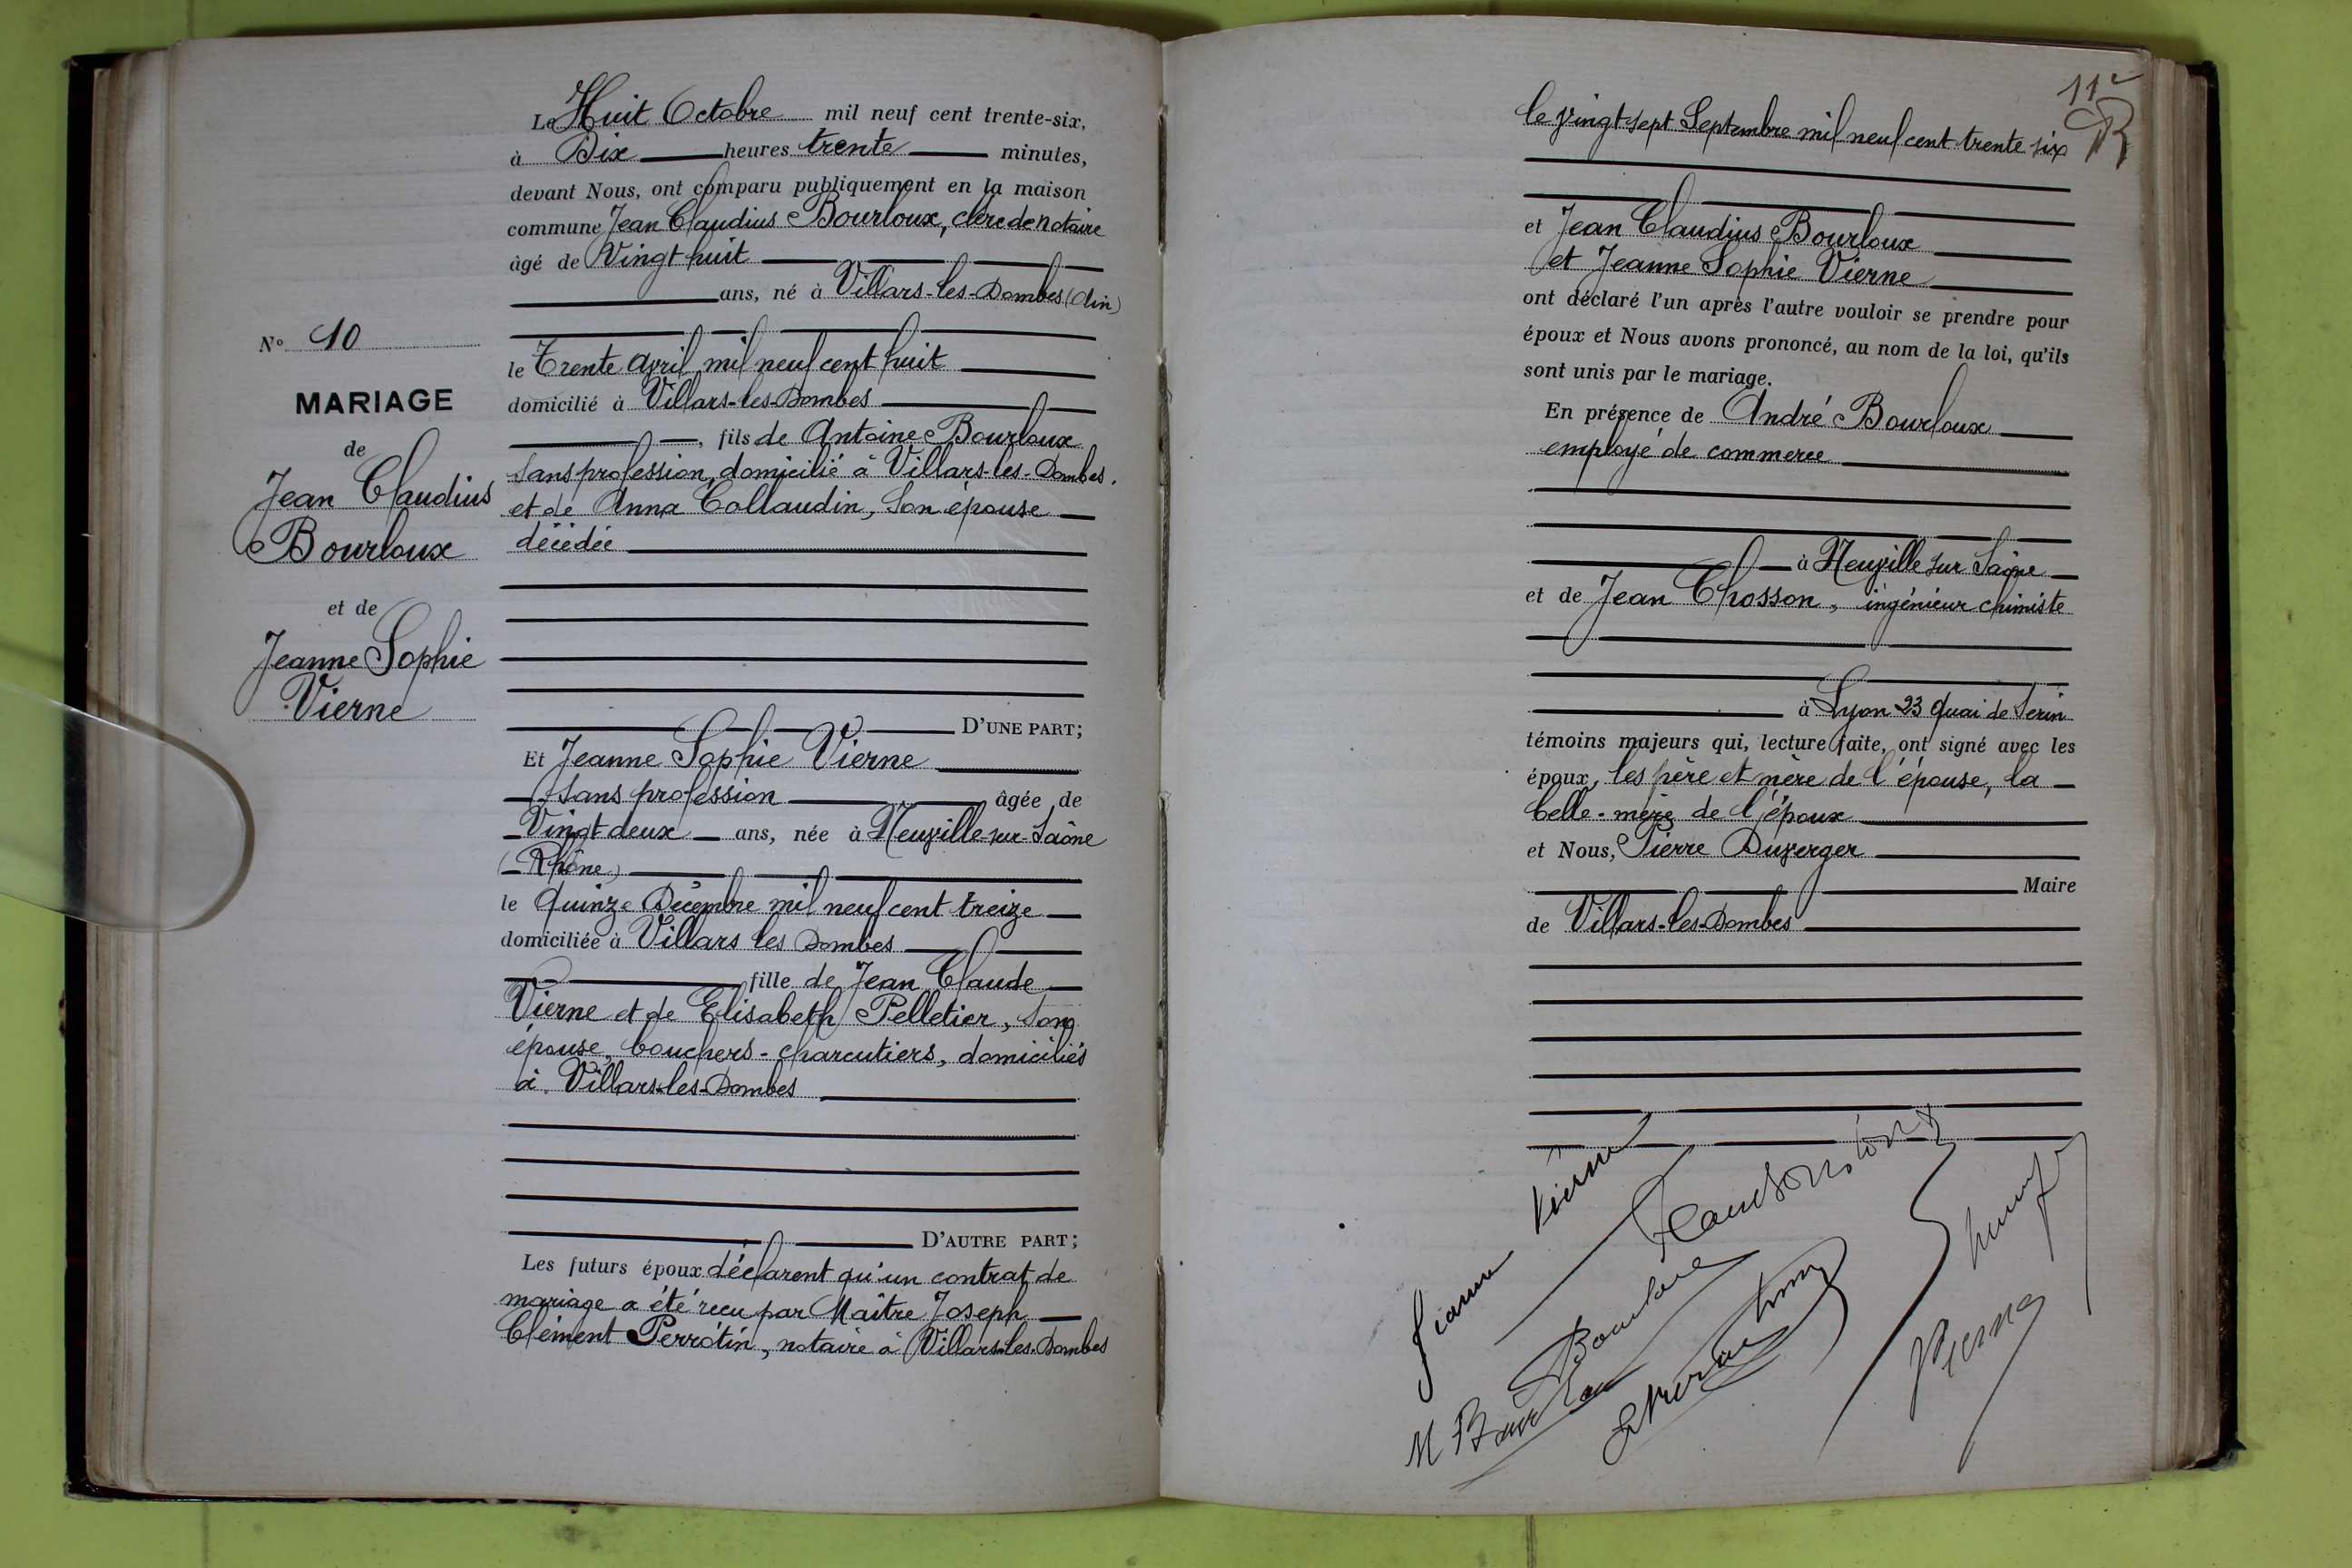 Le Huit Octobre mil neuf cent trente-six,
à Dix heures trente minutes,
devant Nous, ont comparu publiquement en la maison
commune Jean Claudius Bourloux, clerc de notaire
âgé de Vingt huit
ans, né à Villars-les-Dombes (Ain)
le Trente avril mil neuf cent huit
domicilié à Villars-les-Dombes
, fils de Antoine Bourloux
sans profession, domicilié à Villars-les-Dombes.
et de Anna Collaudin, son épouse
décédée
D'UNE PART;
Et Jeanne Sophie Vierne
sans profession âgée de
Vingt deux ans, née à Neuville-sur-Saône
(Rhône)
le quinze Décembre mil neuf cent treize
domiciliée à Villars les Dombes
fille de Jean Claude
Vierne et de Elisabeth Pelletier, son
épouse, bouchers-charcutiers, domiciliés
à Villars-les-Dombes
D'AUTRE PART;
Les futurs époux déclarent qu'un contrat de
mariage a été reçu par Maître Joseph
Clément Perrotin, notaire à Villars-les-Dombes
N° 10
MARIAGE
de
Jean Claudius
Bourloux
et de
Jeanne Sophie
Vierne
11
le vingt-sept Septembre mil neuf cent trente six
et Jean Claudius Bourloux
et Jeanne Sophie Vierne
ont déclaré l'un après l'autre vouloir se prendre pour
époux et Nous avons prononcé, au nom de la loi, qu'ils
sont unis par le mariage.
En présence de André Bourloux
employé de commerce
à Neuville sur Saône
et de Jean Chosson, ingénieur chimiste
à Lyon 23 quai de Serin
témoins majeurs qui, lecture faite, ont signé avec les
époux, les père et mère de l'épouse, la
belle-mère de l'époux
et Nous, Pierre Duverger
Maire
de Villars-les-Dombes
Jeanne Vierne
M Bourloux
Vierne